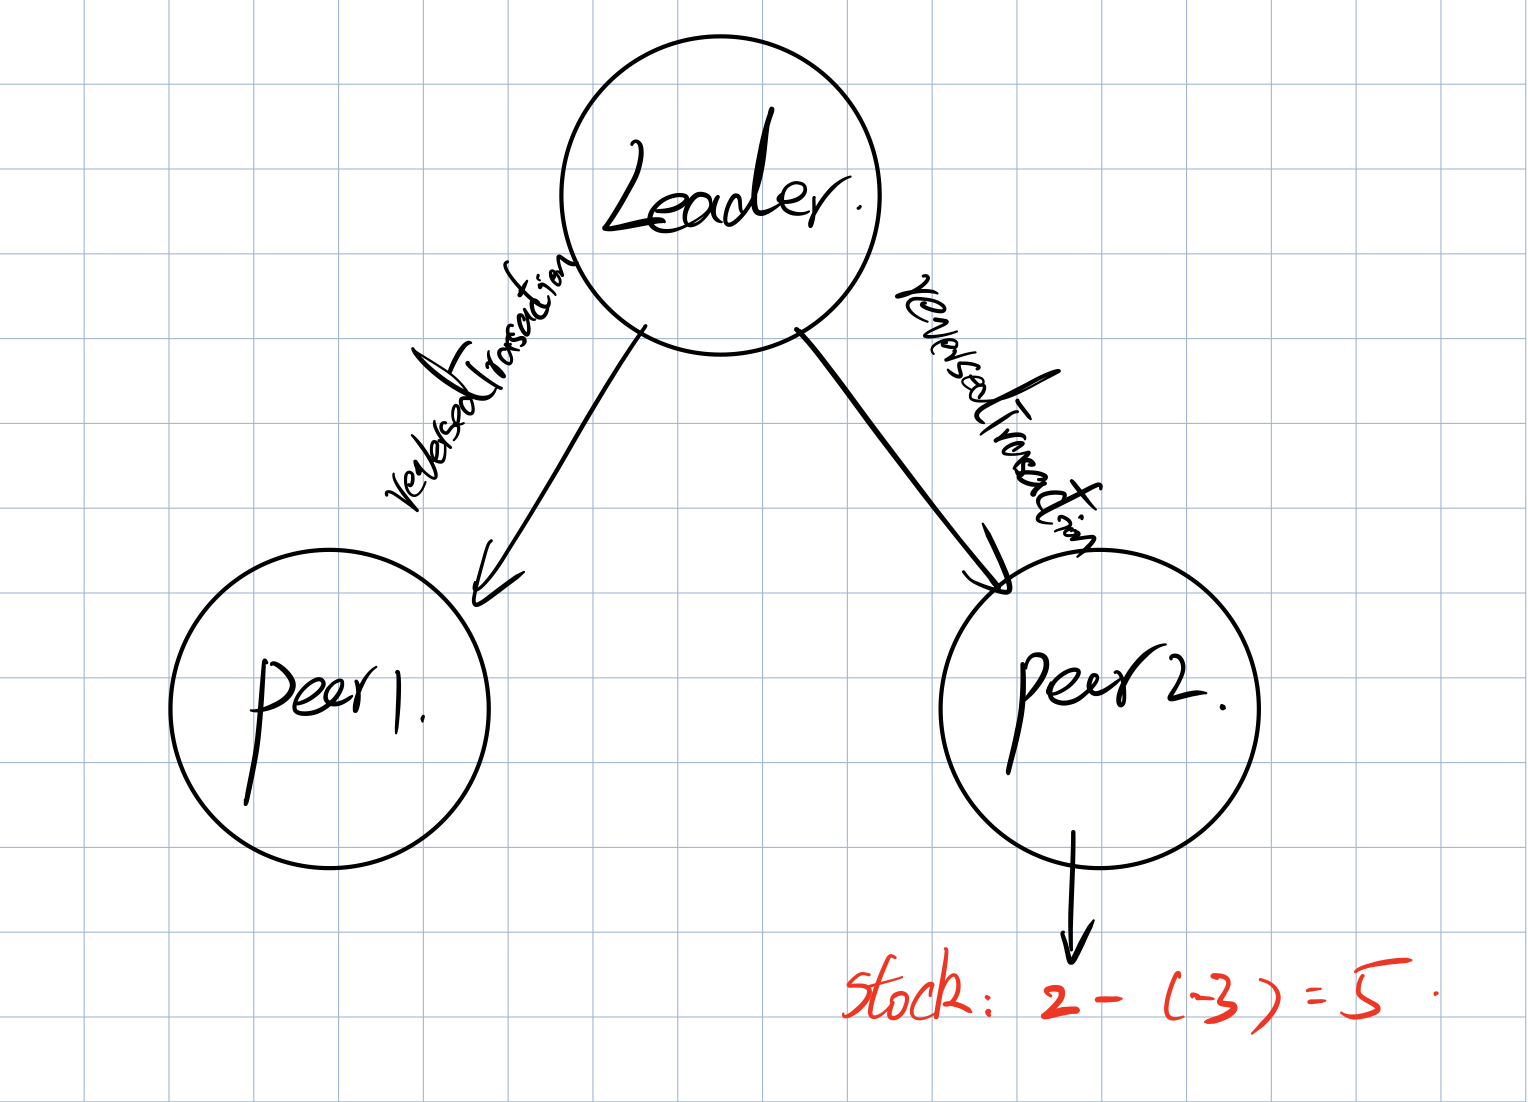 Leader.
reversedTrasaction
reversedTrasaction
peer1.
peer2.
stock: 2-(-3)=5.